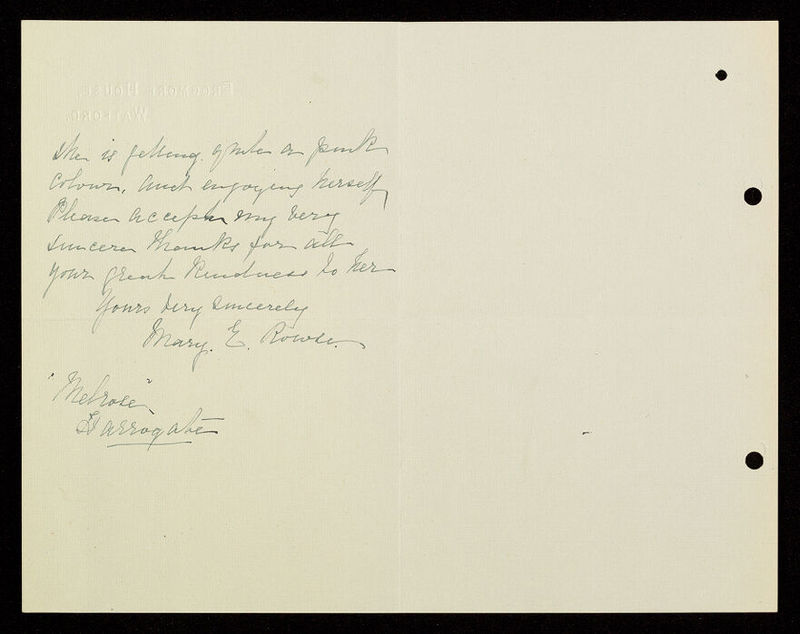 FROGMORE HOUSE,
WATFORD.
She is getting quite a pink
colour, and enjoying herself,
Please accept my very
sincere thanks for all
your great kindness to her
Yours very sincerely
Mary. E. Rowse.
"Melrose",
Harrogate